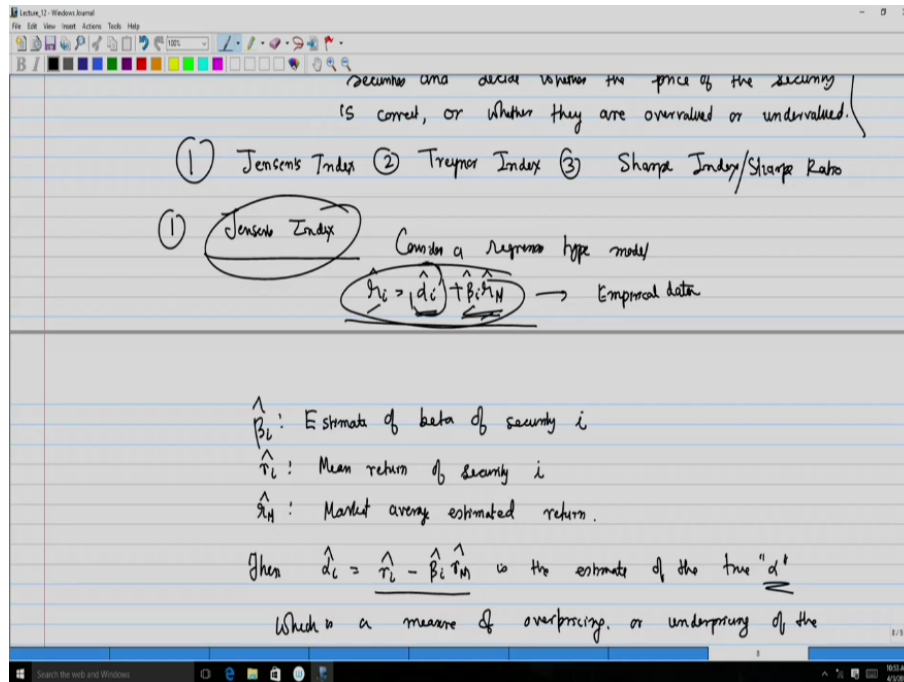 Lecture_12 - Windows Journal
File Edit View Insert Actions Tools Help
100%
B I
securities and decide whether the price of the security
is correct, or whether they are overvalued or undervalued.
① Jensen's Index ② Treynor Index ③ Sharpe Index/Sharpe Ratio
① Jensen's Index
Consider a regression type model
r̂i = α̂i + β̂i r̂M → Empirical data
β̂i : Estimate of beta of security i
r̂i : Mean return of security i
r̂M : Market average estimated return.
Then α̂i = r̂i - β̂i r̂M is the estimate of the true "α"
which is a measure of overpricing. or underpricing of the
8/9
8
Search the web and Windows
10:53 A